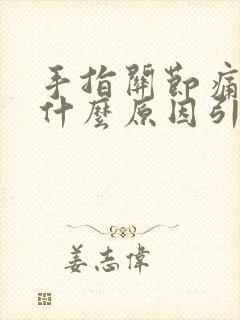 手指關節痛
什麼原因引
姜志偉